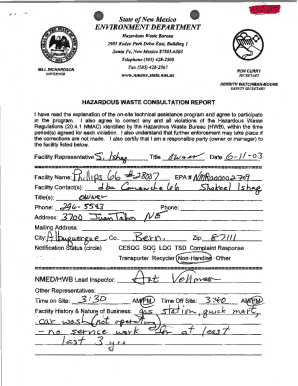 State of New Mexico
ENVIRONMENT DEPARTMENT
Hazardous Waste Bureau
2905 Rodeo Park Drive East, Building 1
Santa Fe, New Mexico 87505-6303
Telephone (505) 428-2500
Fax (505) 428-2567
www.nmenv.state.nm.us
BILL RICHARDSON
GOVERNOR
RON CURRY
SECRETARY
DERRITH WATCHMAN-MOORE
DEPUTY SECRETARY
HAZARDOUS WASTE CONSULTATION REPORT
I have read the explanation of the on-site technical assistance program and agree to participate
in the program. I also agree to correct any and all violations of the Hazardous Waste
Regulations (20.4.1 NMAC) identified by the Hazardous Waste Bureau (HWB), within the time
period(s) agreed for each violation. I also understand that further enforcement may take place if
the corrections are not made. I also certify that I am a responsible party (owner or manager) to
the facility listed below.
Facility Representative S. Ishaq Title owner Date 6-11-03
Facility Name: Phillips 66 #28007 EPA#
Facility Contact(s): dba Comanche 66 Shakeel Ishaq
Title(s): owner
Phone: 296-5593 Phone:
Address: 3700 Juan Tabo NE
Mailing Address:
City: Albuquerque Co. Bern. Zip: 87111
Notification Status (circle) CESQG SQG LQG TSD Complaint Response
Transporter Recycler Non-Handler Other
NMED/HWB Lead Inspector: Art Vollmer
Other Representatives:
Time on Site: 3:30 AM/PM Time Off Site: 3:40 AM/PM
Facility History & Nature of Business: gas station, quick mart,
car wash (not operating)
- no service work for at least
last 3 yrs.